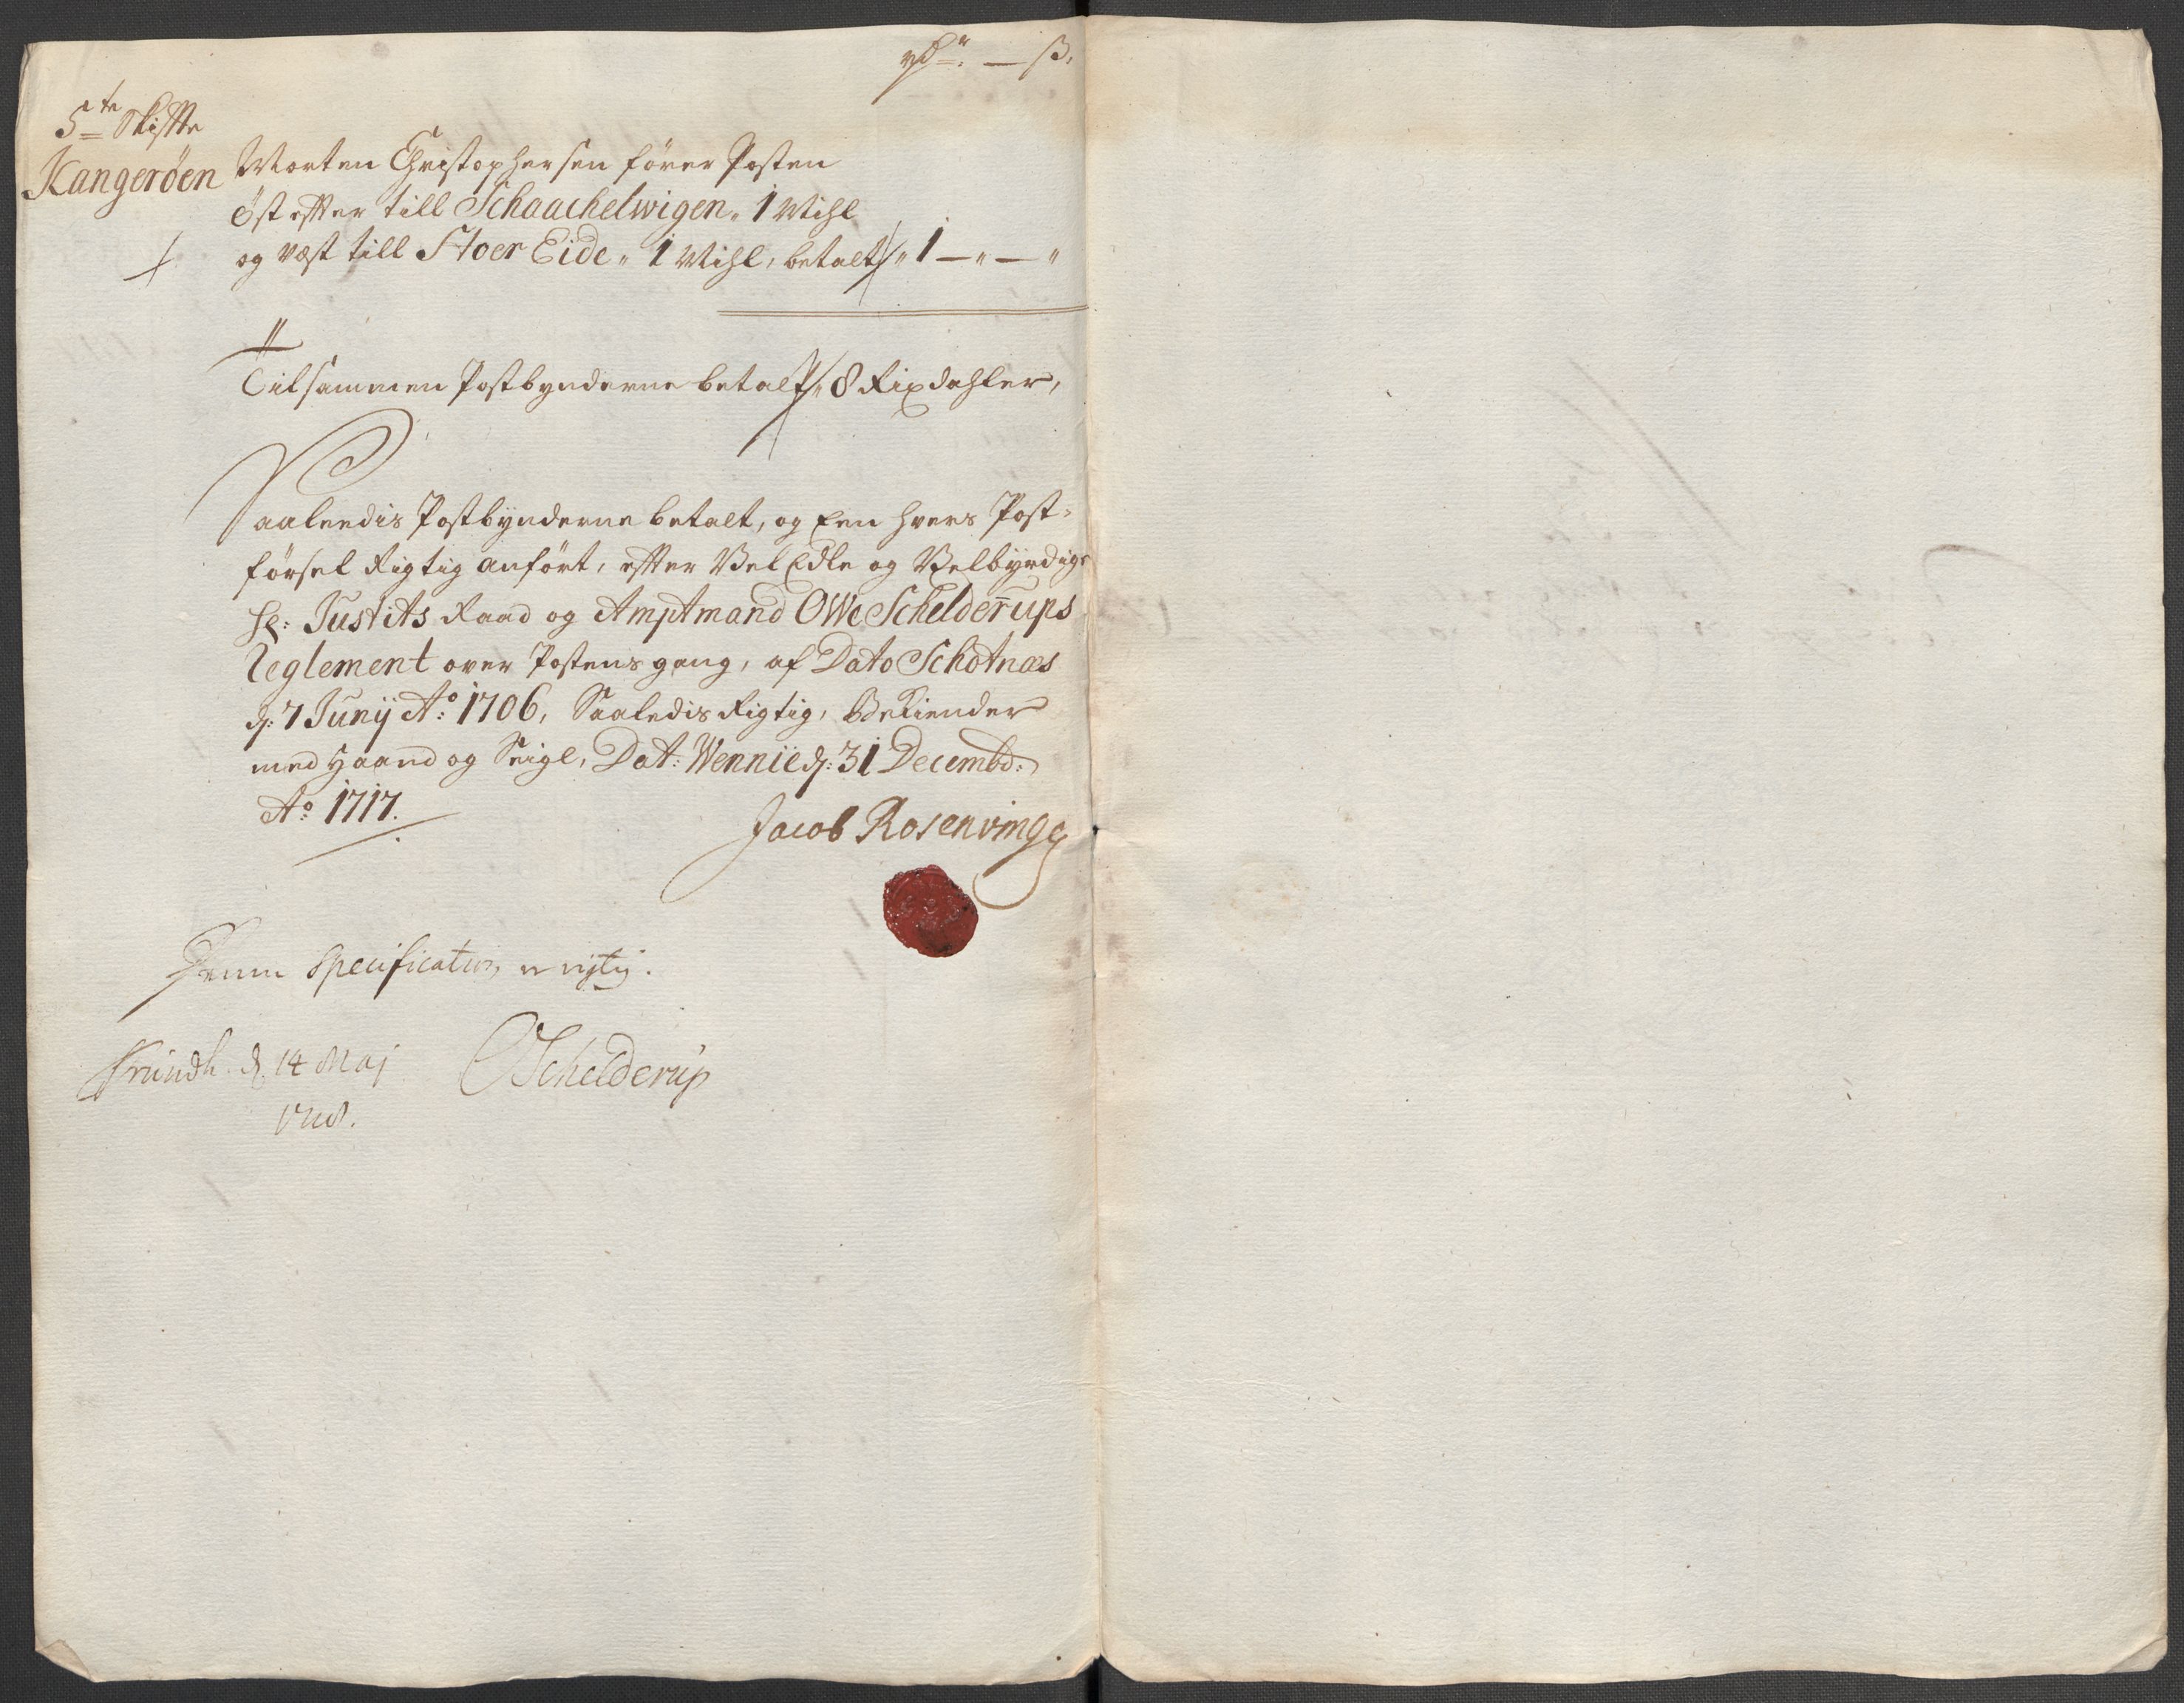 rdr. — ß.
5te Skiffte
Kangerøen
Morten Christophersen fører Posten
øst effter till Schaachelwigen „ 1 Mihl
og væst till Stoer Eide „ 1 Mihl, betalt „ 1 — „ — „
Tilsammen Postbynderne betalt „ 8 Rixdahler,
Saaleedis Postbynderne betalt, og Een hvers Post-
førsel Rigtig anført, effter Vel Edle og Velbyrdige
Hr: Justits Raad og Amptmand Owe Schelderups
Reglement over Postens gang, af Dato Schotnæs
d: 7 Junij Ao: 1706, Saaledis Rigtig, Bekiender
med Haand og Seigl, Dat: Wennie d: 31 Decembr:
Ao: 1717.
Jacob Rosenvinge
Denne Specification er rigtig.
Trundh. d. 14 Maj
OSchelderup
1718.